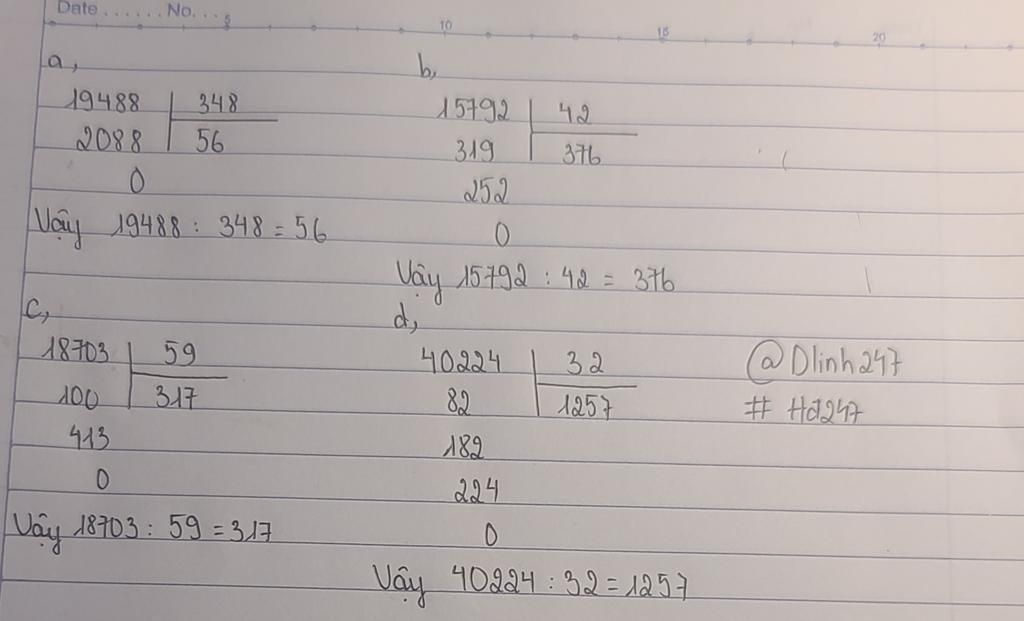 Date ...... No. ...
5 10 15 20
a,
19488 348
2088 56
0
Vậy 19488 : 348 = 56
b,
15792 42
319 376
252
0
Vậy 15792 : 42 = 376
c,
18703 59
100 317
413
0
Vậy 18703 : 59 = 317
d,
40224 32
82 1257
182
224
0
Vậy 40224 : 32 = 1257
@Dlinh247
# Hd247